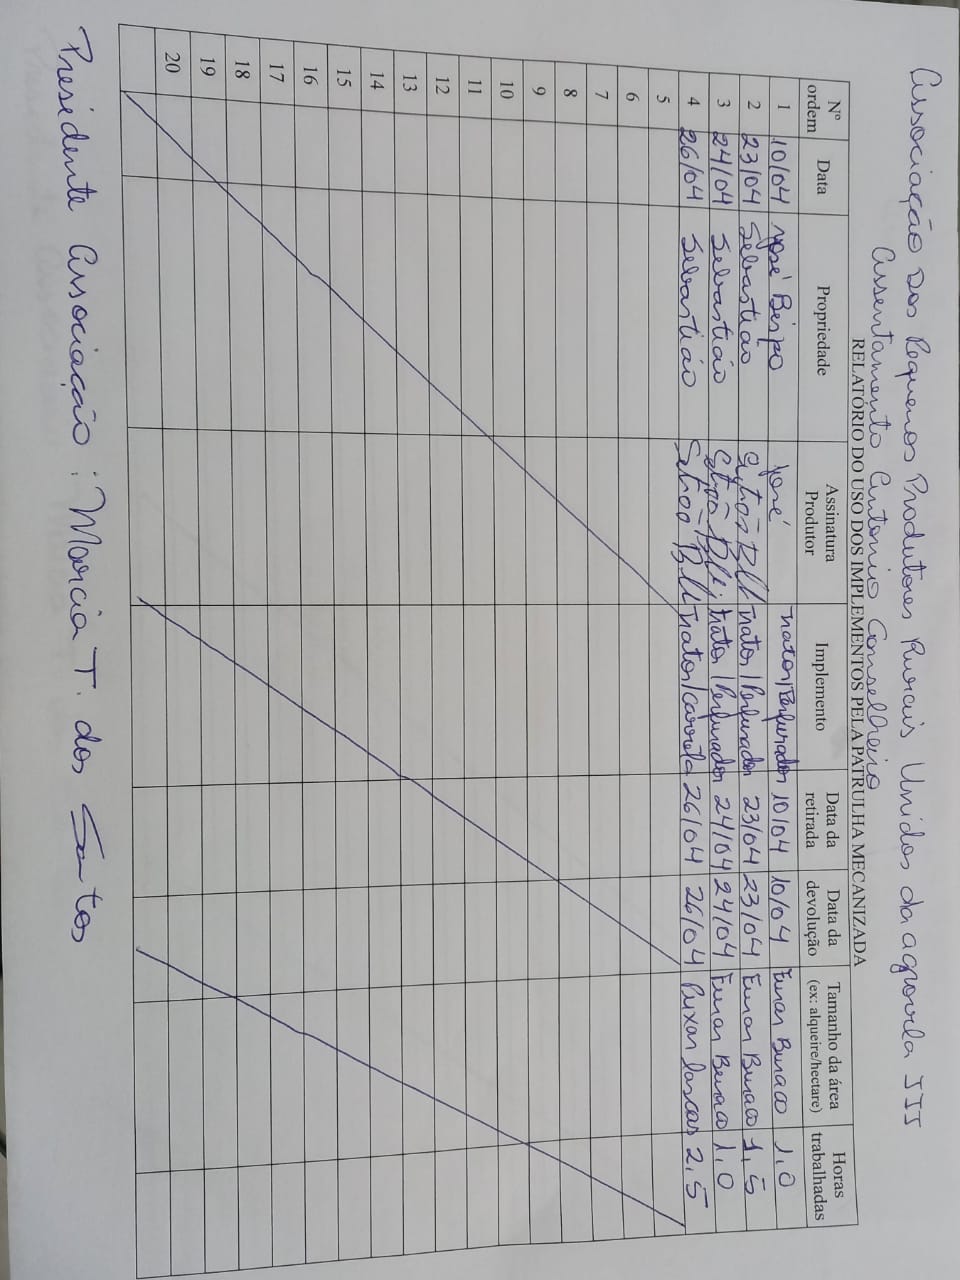 Associação Dos Pequenos Produtores Rurais Unidos da agrovila III
Assentamento Antonio Conselheiro
RELATÓRIO DO USO DOS IMPLEMENTOS PELA PATRULHA MECANIZADA
Nº ordem Data Propriedade Assinatura Produtor Implemento Data da retirada Data da devolução Tamanho da área (ex: alqueire/hectare) Horas trabalhadas
1 10/04 José Bispo José Trator/Perfurador 10/04 10/04 Furar Buraco 1,0
2 23/04 Sebastião Trator/Perfurador 23/04 23/04 Furar Buraco 1,5
3 24/04 Sebastião Trator/Perfurador 24/04 24/04 Furar Buraco 1,0
4 26/04 Sebastião Trator/Carreta 26/04 26/04 Puxar lascas 2,5
5
6
7
8
9
10
11
12
13
14
15
16
17
18
19
20
Presidente Associação: Marcia T. dos Santos